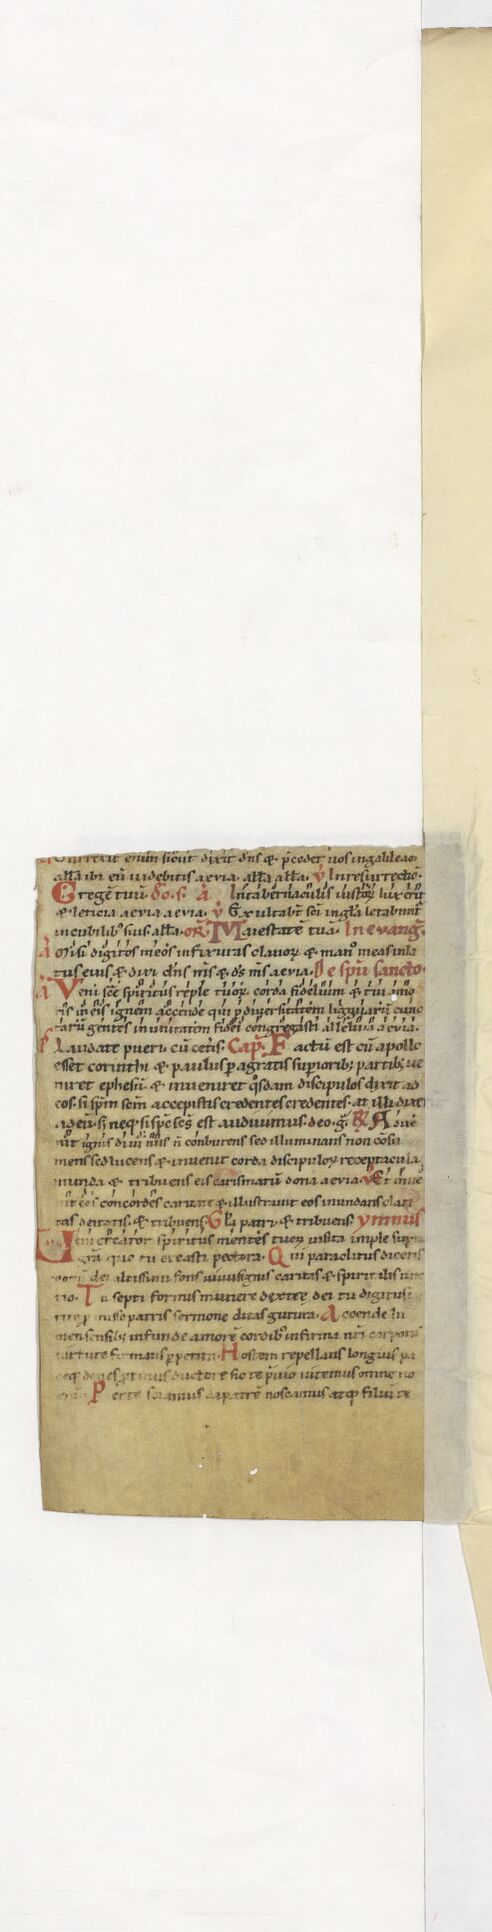 Surrexit enim sicut dixit dn̄s & p̄cedet uos in galileaꝫ
ałła ibi eū uidebitis aeuia. ałła ałła. v̄ In resurrectio.
E regē tuū. do. s. A In tabernaculis iustoꝝ lux orta
& leticia aeuia aeuia. v̄ Exultabt̄ sc̄i in gl̄a letabunt̄
in cubilibꝰ suis ałła. or̄. Maiestatē tua. In euanḡ.
A Misi digitos meos in fixuras clauoꝝ & manꝰ meas in la
tus eius & dixi dn̄s m̄s & ds̄ m̄s aeuia. De spū sancto.
A Veni sc̄e spiritus reple tuoꝝ corda fidelium & tui amo
ris in eis ignem accende qui p̄ diuersitatem linguarū cunc
tarū gentes in unitatem fidei congregasti alleluia aeuia.
Laudate pueri. cū cet̄is. Cap̄. Factū est cū apollo
esset corinthi & paulus p̄agratis superioribꝫ partibꝫ ue
niret ephesū & inueniret q̄sdam discipulos dixit ad
eos. si sp̄m sc̄m accepistis credentes credentes. at illi dixer̄
ad eū. sꝫ neqꝫ si sp̄c sc̄s est audiuimus. deo. g̃. R̄ Adue
nit ignis diuinus n̄ conburens sed illuminans non consu
mens sed lucens & inuenit corda discipuloꝝ receptacula
munda & tribuens eis carismatū dona aeuia. v̄ Et inue
nit eos concordes caritate & illustrauit eos inundans clari
tas deitatis. & tribuens. Gl̄a patri. & tribuens. ymnus
Veni creator spiritus mentes tuoꝝ uisita imple supna
gr̄a que tu creasti pectora. Qui paraclitus diceris
donū dei altissimi fons uiuus ignis caritas & spiritalis unc
tio. Tu septiformis munere dextre dei tu digitus
rite p̄missū patris sermone ditas gutura. Accende lu
men sensibꝫ infunde amorē cordibꝰ infirma nr̄i corporis
uirtute firmans p̄petim. Hostem repellans longius pa
ceqꝫ dones p̄tinus ductore sic te p̄uio uitemus omne no
xiū. Per te sciamus da patrē noscamus atqꝫ filiū te